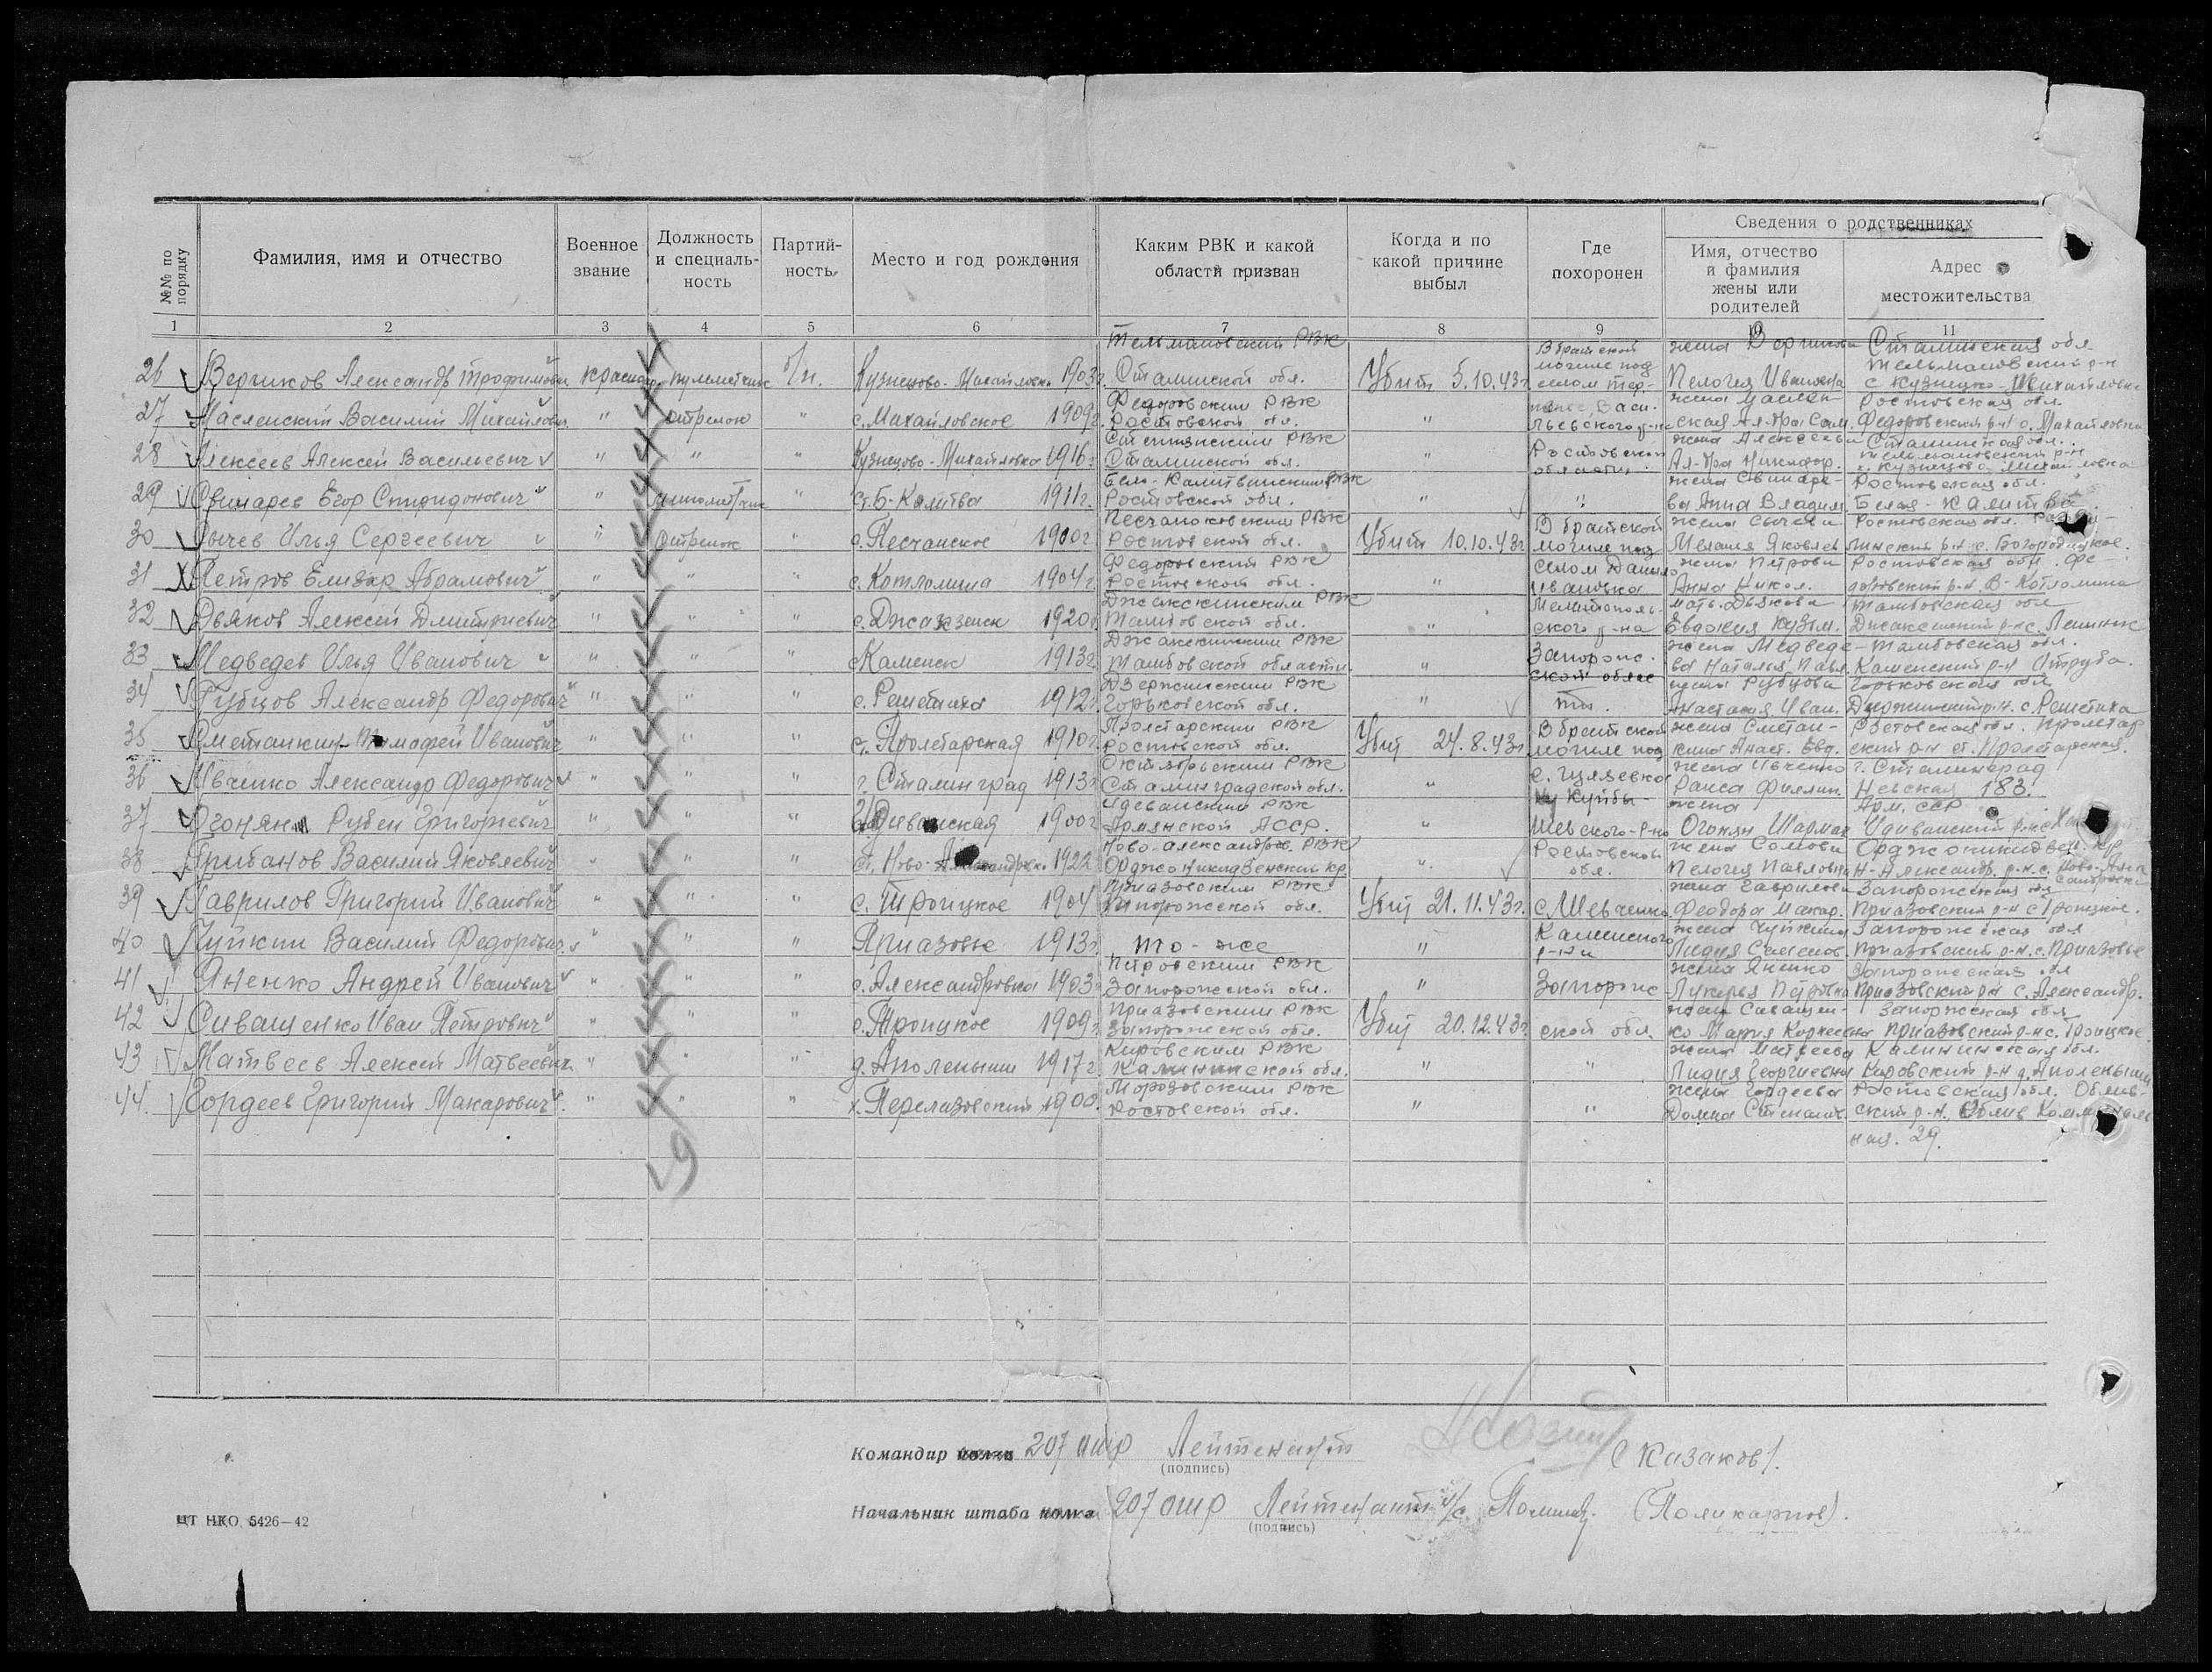 №№ по порядку
Фамилия, имя и отчество
Военное звание
Должность и специаль-ность
Партий-ность
Место и год рождения
Каким РВК и какой области призван
Когда и по какой причине выбыл
Где похоронен
Сведения о родственниках
Имя, отчество и фамилия жены или родителей
Адрес местожительства
1 2 3 4 5 6 7 8 9 10 11
26 Вериков Александр Трофимович красноар. пулеметчик б/п. Кузнецово-Михайловка 1903г. Тельмановский РВК Сталинской обл. Убит 5.10.43г. В братской могиле под селом жена Верикова Пелогея Ивановна Сталинская обл Тельмановский р-н с Кузнецко-Михайловка
27 Масленский Василий Михайлович " стрелок " с. Михайловское 1909г. Федоровским РВК Ростовской обл. " Васильевского р-на жена Масленская Ал-дра Сам. Ростовская обл. Федоровский р-н с. Михайловка
28 Алексеев Алексей Васильевич " " " Кузнецово-Михайловка 1916г. РВК Сталинской обл. " Ростовской области. жена Алексеева Ал-дра Никифор. Сталинская обл. Тельмановский р-н с. Кузнецово Михайловка
29 Свинарев Егор Спиридонович " " ст. Б-Калитва 1911г. Бело-Калитвинским РВК Ростовской обл. " " жена Свинарева Анна Владим Ростовская обл. Белая-Калитва
30 Сычев Илья Сергеевич " стрелок " с. Песчанское 1900г. Песчанокопским РВК Ростовской обл. Убит 10.10.43г. В братской могиле под жена Сычева Мелания Яковлев Ростовская обл. с. Богородицкое.
31 Петров Елизар Абрамович " " " с. Котломина 1904г. Федоровский РВК Ростовской обл. " селом Данило-Ивановка жена Петрова Анна Никол. Ростовская обл. Федоровский р-н. В-Котломина
32 Дьяков Алексей Дмитриевич " " " 1920г. РВК Тамбовской обл. " Мелитопольского р-на мать. Дьякова Евдокия Кузьм. Тамбовская обл
33 Медведев Илья Иванович " " " с Каменск 1913г. РВК Тамбовской области. " Запорожской облас жена Медведева Наталья Павл. Тамбовская обл. Каменский р-н Отруба.
34 Рубцов Александр Федорович " " " с. Решетиха 1912г. Дзержинским РВК Горьковской обл. " ти. жена Рубцова Анастасия Иван. Горьковская обл Дзержинский р-н. с. Решетиха
35 Сметанкин Тимофей Иванович " " " ст. Пролетарская 1910г. Пролетарским РВК Ростовской обл. Убит 24.8.43г. В братской могиле под жена Сметанкина Анаст. Евд. Ростовская обл. Пролетарский р-н ст. Пролетарская.
36 Ивченко Александр Федорович " " " г. Сталинград 1913г. Октябрьским РВК Сталинградской обл. " жена Ивченко Раиса Филип. г. Сталинград Невская 183.
37 Огонян Рубен Григорьевич " " " 1900г. РВК Армянской АССР. " Куйбышевского-р-на жена Огонян Арм. ССР
38 Грибанов Василий Яковлевич " " " ст. Ново-Александровск. 1922 Ново-Александров. РВК Орджоникидзевский кр " Ростовской обл. жена Сомова Пелогея Павловна Орджоникидзев. кр Н-Александр. р-н. с. Ново-Александровск
39 Гаврилов Григорий Иванович " " " с. Троицкое 1904 Приазовским РВК Запорожской обл. Убит 21.11.43г. с. Шевченко жена Гаврилова Феодора Макар. Запорожская обл Приазовский р-н с Троицкое.
40 Чуйкин Василий Федорович " " " Приазовье 1913г. то-же " Каменского р-на жена Чуйкина Лидия Семенов. Запорожская обл Приазовский р-н. с. Приазовье
41 Яненко Андрей Иванович " " " с. Александровка 1903г. Петровским РВК Запорожской обл. " Запорож жена Яненко Лукерья Петровна Запорожская обл Приазовский р-н с. Александр.
42 Сиващенко Иван Петрович " " " с. Троицкое 1909г. Приазовским РВК Запорожской обл. Убит 20.12.43г. ской обл. жена Сиващенко Мария Запорожская обл. Приазовский р-н с. Троицкое
43 Матвеев Алексей Матвеевич " " " д. Аполеныши 1917г. Кировским РВК Калининской обл. " " жена Матвеева Лидия Георгиевна Калининская обл. Кировский р-н д. Аполеныши
44. Гордеев Григорий Макарович " " " х. Перелазовский 1900. Морозовским РВК Ростовской обл. " " жена Гордеева Домна Степанов. Ростовская обл. Обливский р-н. Облив Коммунальная. 29.
19
Командир полка 207 ошр Лейтенант (Казаков).
(подпись)
Начальник штаба полка 207 ошр Лейтенант и/с (Поликарпов).
(подпись)
ЦТ НКО 5426—42